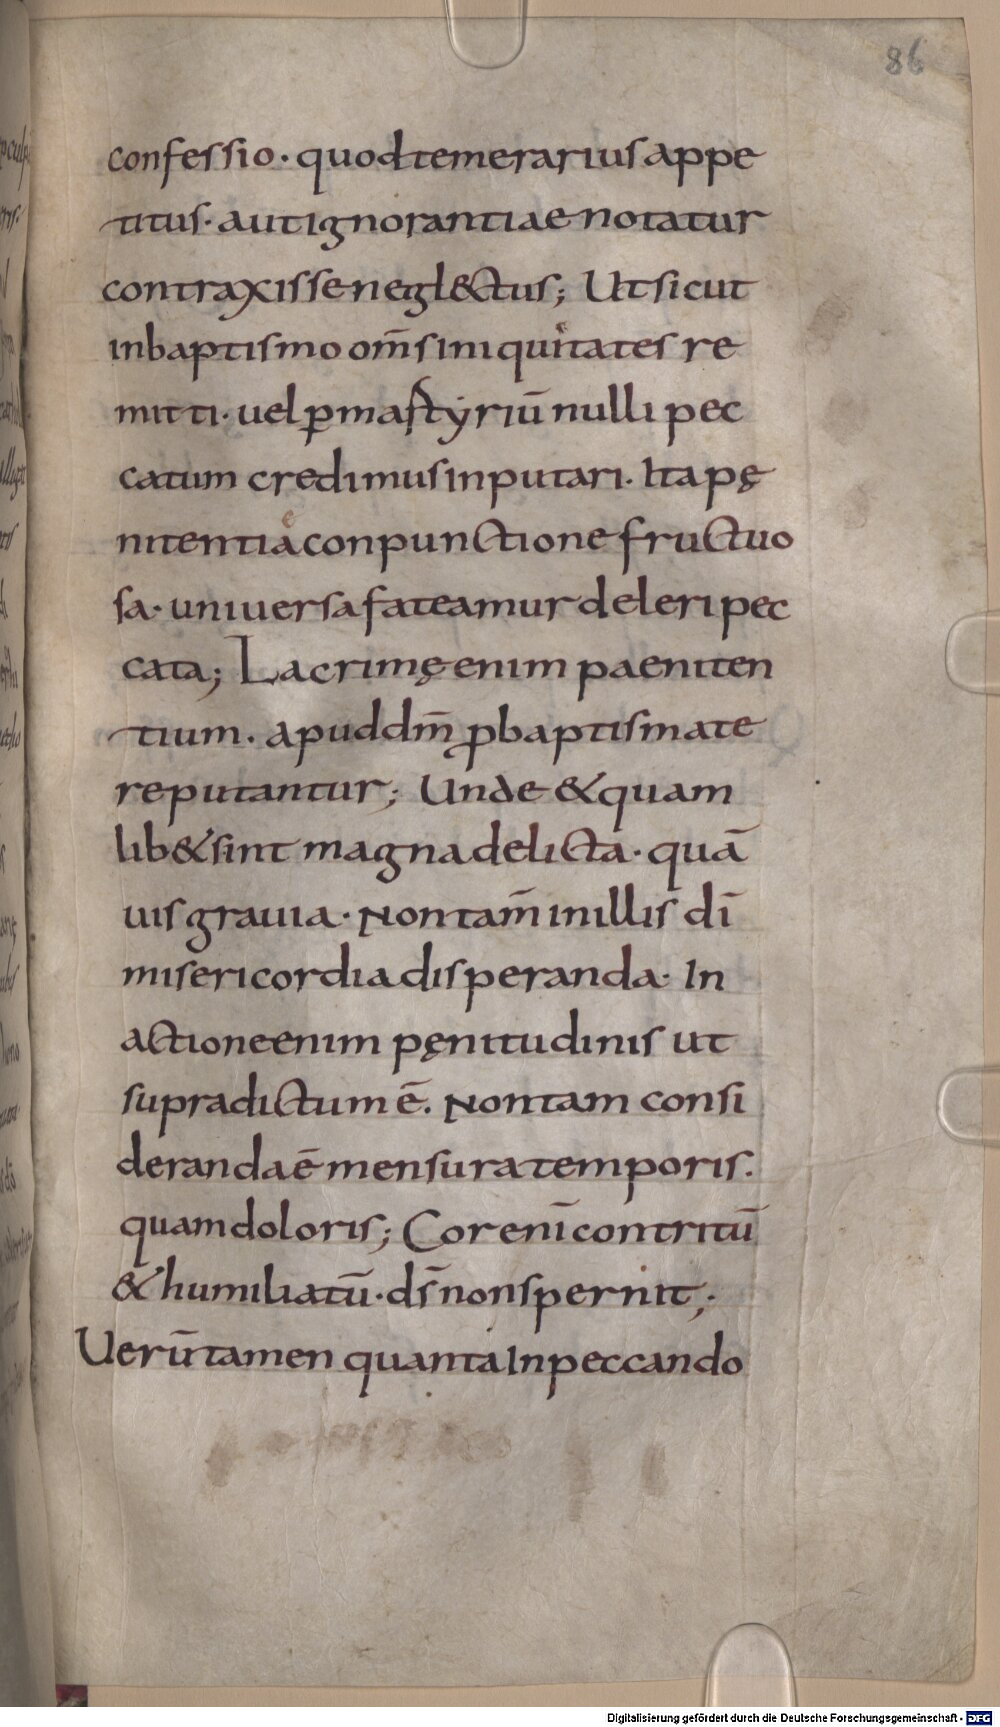 86
confessio· quod temerarius appe
titus· aut ignorantiae notatur
contraxisse negl&ctus; Ut sicut
in baptismo om̅s iniquitates re
mitti· uel ꝑ mastyriū nulli pec
catum credimus inputari. Ita pę
nitentiae conpunctione fructuo
sa· uniuersa fateamur deleri pec
cata; Lacrimę enim paeniten
tium. apud dm̅ ꝓ baptismate
reputantur; Unde & quam
lib& sint magna delicta· quā
uis grauia· Non tam̅ in illis dī
misericordia disperanda· In
actione enim pęnitudinis ut
supradictum ē. Non tam consi
deranda ē mensura temporis.
quam doloris; Cor enī contritū
& humiliatū· ds̅ non spernit;
Uerūtamen quanta in peccando
Digitalisierung gefördert durch die Deutsche Forschungsgemeinschaft - DFG